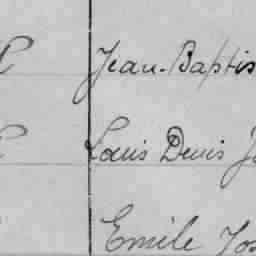 Jean-Baptis
Louis Denis J
Emile Jos